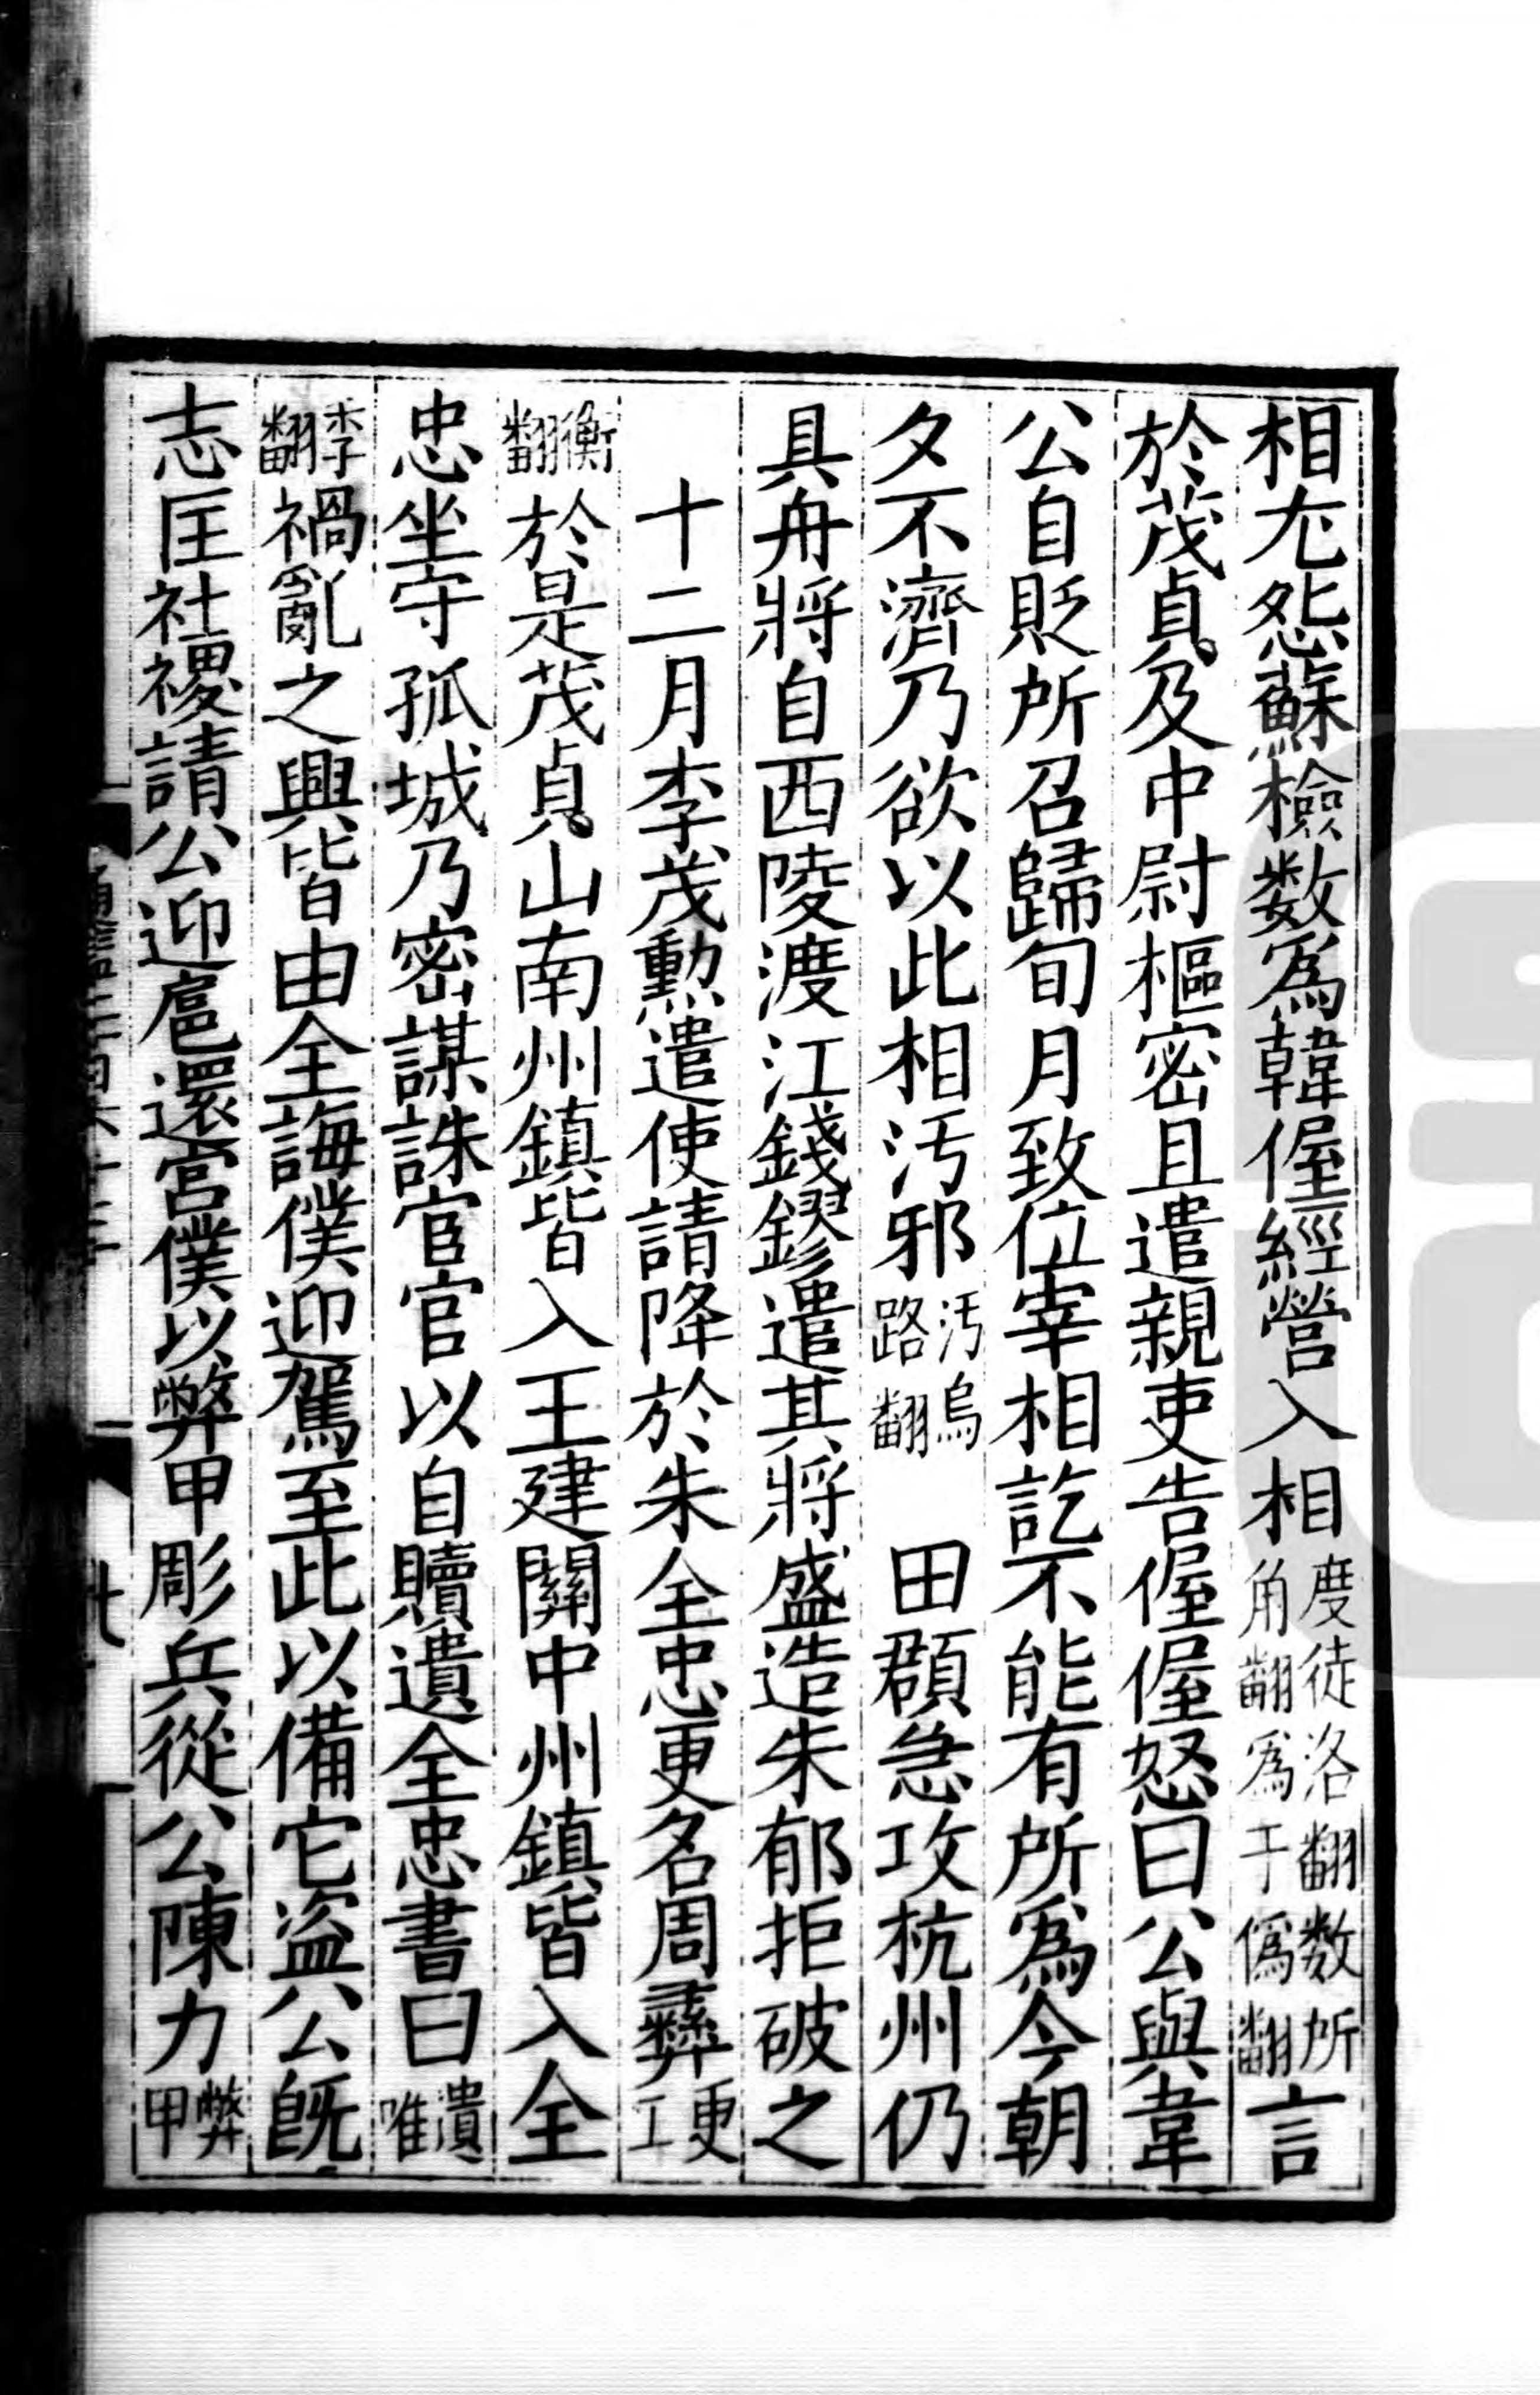 相尤怨蘇檢數爲韓偓經營入相度徒洛翻數所角翻爲于僞翻言
於茂貞及中尉樞密且遣親吏告偓偓怒曰公與韋
公自貶所召歸旬月致位宰相訖不能有所爲今朝
夕不濟乃欲以此相汚邪汚烏路翻　田頵急攻杭州仍
具舟將自西陵渡江錢鏐遣其將盛造朱郁拒破之
十二月李茂勲遣使請降於朱全忠更名周彝更工
衡翻於是茂貞山南州鎮皆入王建關中州鎮皆入全
忠坐守孤城乃密謀誅宦官以自贖遺全忠書曰潰唯
季翻禍亂之興皆由全誨僕迎駕至此以備它盜公旣
志匡社稷請公迎扈還宮僕以弊甲彫兵從公陳力弊甲